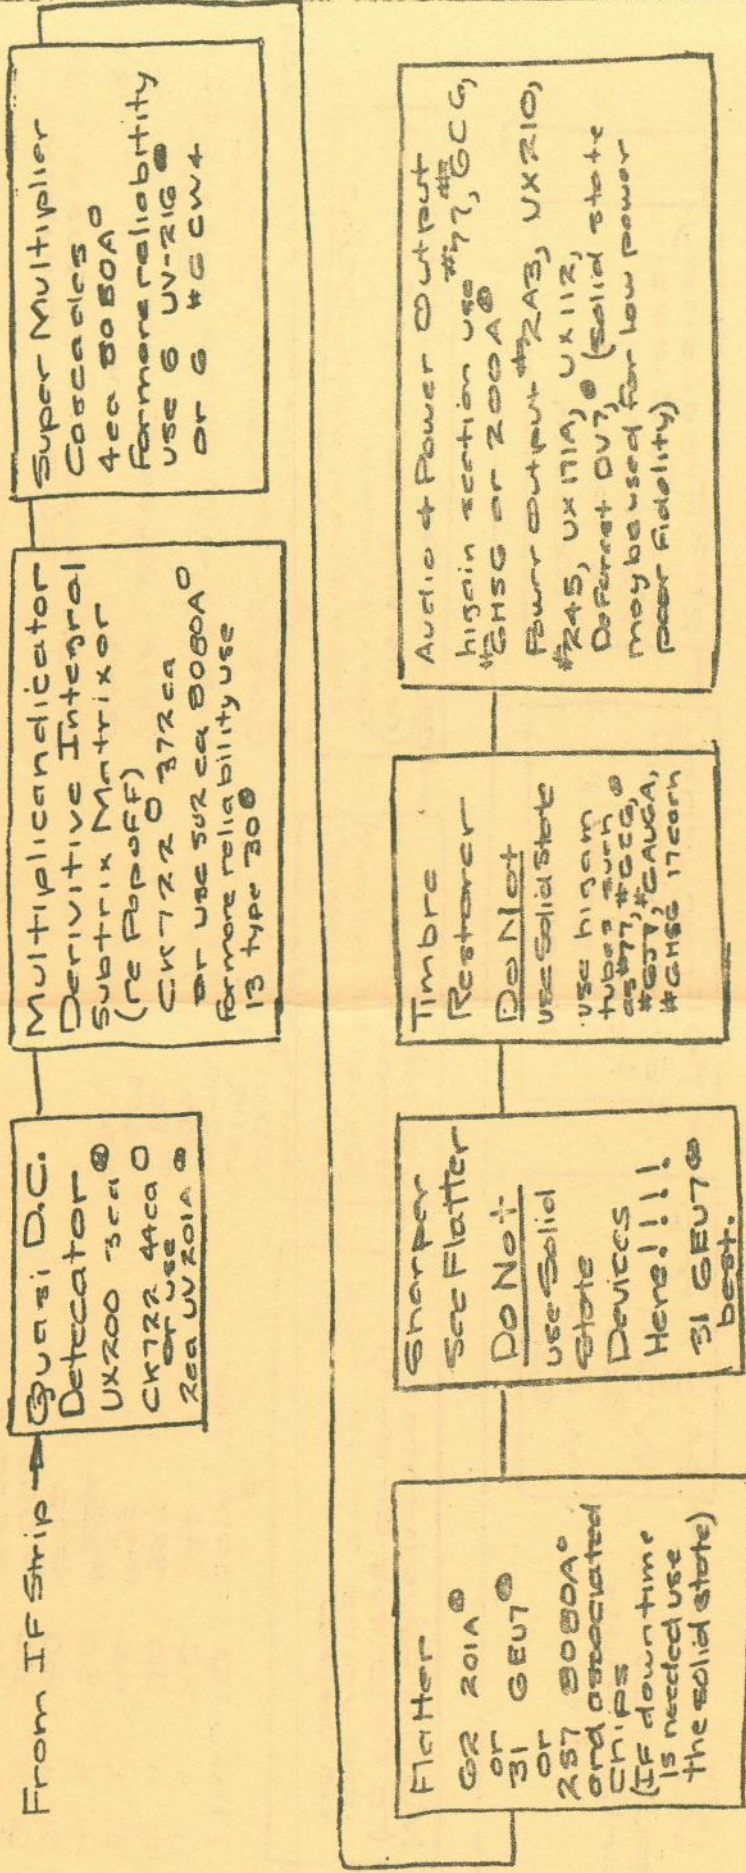 From IF Strip
Quasi D.C.
Detecator
UX200 3ea
CK722 44ea
or use
2ea UV201A
Multiplicandicator
Derivitive Integral
Subtrix Matrixor
(re Popoff)
CK722 372ea
or use 502 ea 8080A
for more reliability use
13 type 30
Super Multiplier
Cascades
4ea 8080A
for more reliabitity
use 6 UV-216
or 6 #6CW4
Flatter
62 201A
or
31 6EU7
or
257 8080A
and associated
Chips
(IF downtime
is needed use
the solid state)
Sharper
See Flatter
Do Not
use Solid
State
Devices
Here!!!!
31 6EU7
best.
Timbre
Restorer
Do Not
use Solid State
use higain
tubes such
as #77, #6C6,
#6J7, #6AU6A,
#6HS6 17 each
Audio & Power Output
higain section use #77, #6C6,
#6HS6 or 200A
Power Output #2A3, UX210,
#245, UX171A, UX112,
DeForrest DV7, (solid state
may be used for low power
poor fidelity)